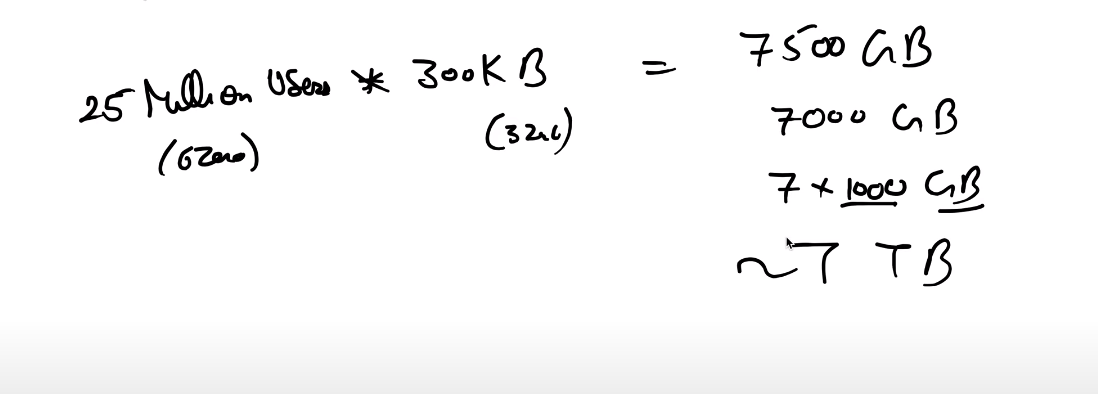 25 Million Users * 300KB = 7500 GB
(6Zero) (3Zero)
7000 GB
7 * 1000 GB
~7 TB